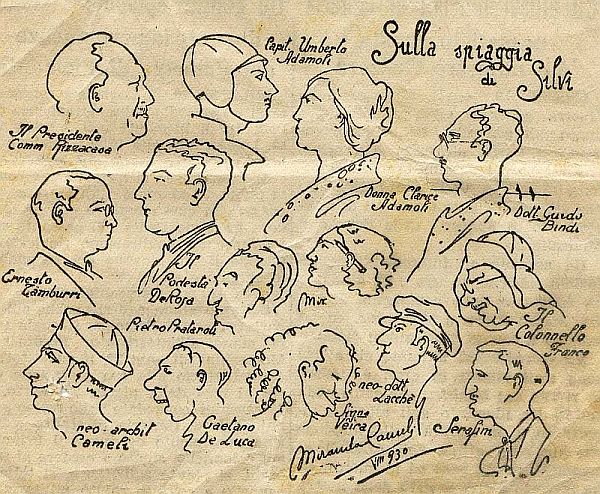 Sulla spiaggia
di Silvi
Capit. Umberto
Adamoli
Il Presidente
Comm Rizzacasa
Donna Clarice
Adamoli
Dott Guido
Bindi
Ernesto
Gamburri
Il
Podestà
DeRosa
Mir.
Il
Colonnello
Franco
Pietro Prataroli
neo-archit
Cameli
Gaetano
De Luca
neo-dott.
Lacchè
Veira
Serafini
Miranda Cameli
VIII 930